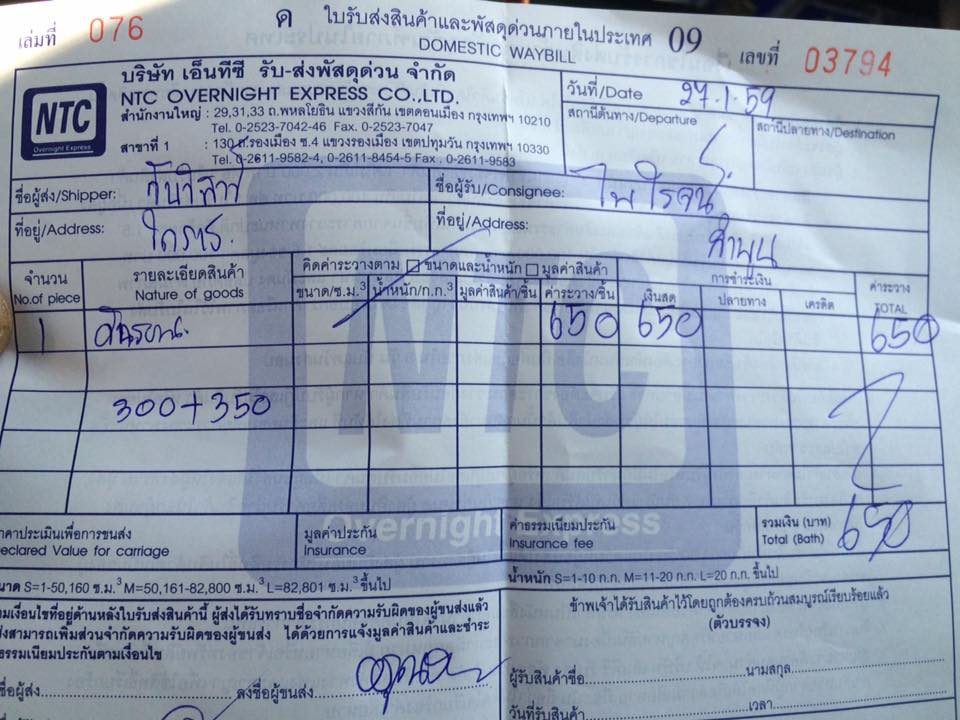 ค ใบรับส่งสินค้าและพัสดุด่วนภายในประเทศ 09
เล่มที่ 076 DOMESTIC WAYBILL เลขที่ 03794
NTC
Overnight Express
บริษัท เอ็นทีซี รับ-ส่งพัสดุด่วน จำกัด
NTC OVERNIGHT EXPRESS CO.,LTD.
สำนักงานใหญ่ : 29,31,33 ถ.พหลโยธิน แขวงสีกัน เขตดอนเมือง กรุงเทพฯ 10210
Tel. 0-2523-7042-46 Fax. 0-2523-7047
สาขาที่ 1 : 130 ถ.รองเมือง ซ.4 แขวงรองเมือง เขตปทุมวัน กรุงเทพฯ 10330
Tel. 0-2611-9582-4, 0-2611-8454-5 Fax . 0-2611-9583
วันที่/Date 27.1.59
สถานีต้นทาง/Departure สถานีปลายทาง/Destination
ชื่อผู้ส่ง/Shipper: ชื่อผู้รับ/Consignee: ไพโรจน์
ที่อยู่/Address: โคราช ที่อยู่/Address: ลำพูน
จำนวน รายละเอียดสินค้า คิดค่าระวางตาม ขนาดและน้ำหนัก มูลค่าสินค้า การชำระเงิน ค่าระวาง
No.of piece Nature of goods ขนาด/ซ.ม.3 น้ำหนัก/ก.ก.3 มูลค่าสินค้า/ชิ้น ค่าระวาง/ชิ้น เงินสด ปลายทาง เครดิต TOTAL
1 650 650 650
300+350
NTC
Overnight Express
ราคาประเมินเพื่อการขนส่ง มูลค่าประกัน ค่าธรรมเนียมประกัน รวมเงิน (บาท) 650
Declared Value for carriage Insurance Insurance fee Total (Bath)
ขนาด S=1-50,160 ซ.ม.3 M=50,161-82,800 ซ.ม.3 L=82,801 ซ.ม.3 ขึ้นไป น้ำหนัก S=1-10 ก.ก. M=11-20 ก.ก. L=20 ก.ก. ขึ้นไป
ตามเงื่อนไขที่อยู่ด้านหลังใบรับส่งสินค้านี้ ผู้ส่งได้รับทราบข้อจำกัดความรับผิดของผู้ขนส่งแล้ว
ผู้ส่งสามารถเพิ่มส่วนจำกัดความรับผิดของผู้ขนส่ง ได้ด้วยการแจ้งมูลค่าสินค้าและชำระ
ค่าธรรมเนียมประกันตามเงื่อนไข
ลงชื่อผู้ส่ง ลงชื่อผู้ขนส่ง
ข้าพเจ้าได้รับสินค้าไว้โดยถูกต้องครบถ้วนสมบูรณ์เรียบร้อยแล้ว
(ตัวบรรจง)
ผู้รับสินค้าชื่อ นามสกุล
วันที่รับสินค้า เวลา